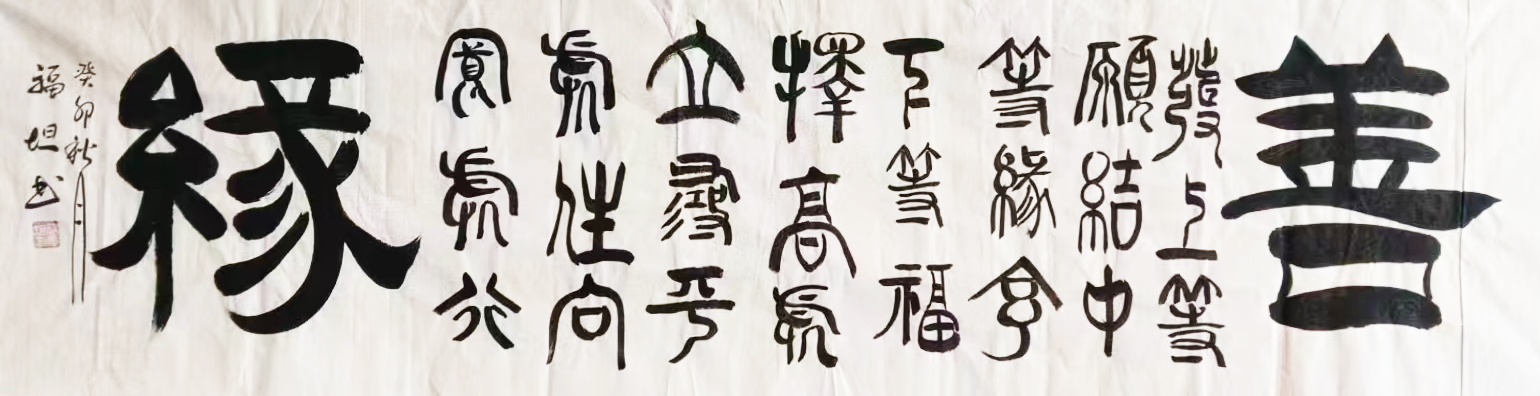 善
發上等
願結中
等緣享
下等福
擇高處
立尋平
處住向
寬處行
緣
癸卯秋月
福坦书